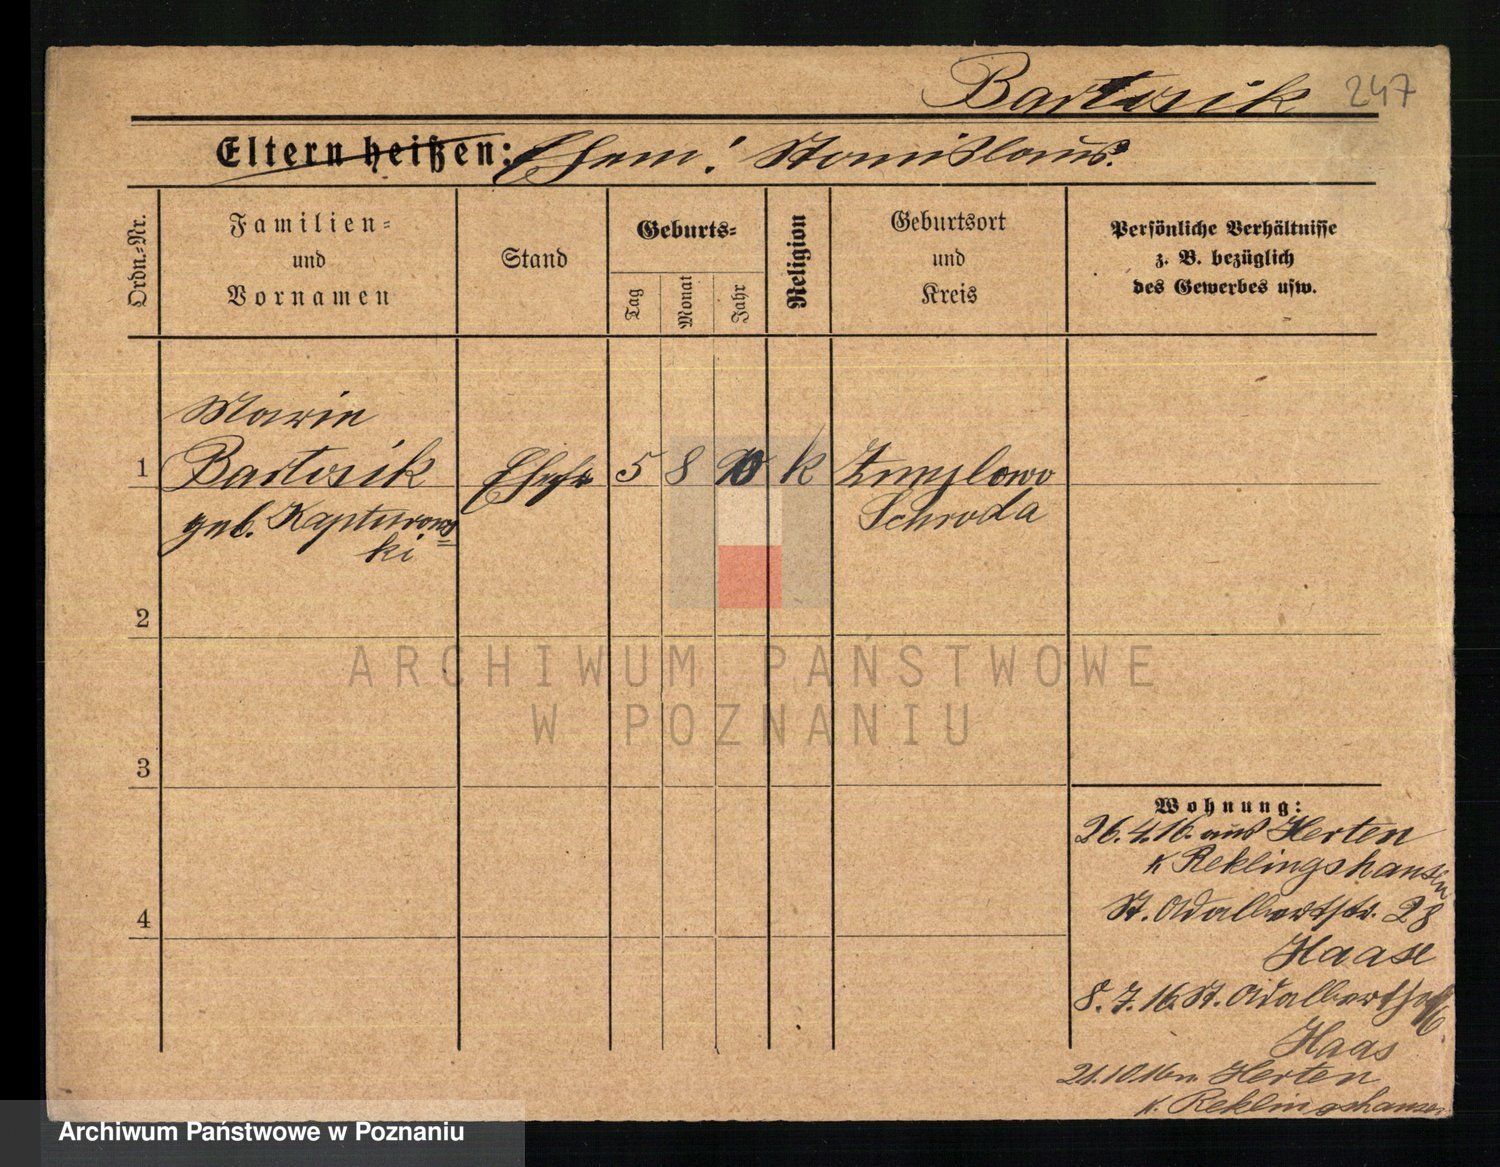 Bartosik 247
Eltern heißen: Ehem: Stanislaus.
Ordn.=Nr.
Familien=
und
Vornamen
Stand
Geburts=
Tag
Monat
Jahr
Religion
Geburtsort
und
Kreis
Persönliche Verhältnisse
z. B. bezüglich
des Gewerbes usw.
Marie
1 Bartosik Ehefr 5 8 k
Schroda
geb. Kapturows=
ki
2
3
4
Wohnung:
26.4.16. aus Herten
K Reklingshausen
St. Adalbertstr. 28
Haase
8. 7. 16. St. Adalbertstr
Haas
21.10.16 n. Herten
K. Reklingshausen
ARCHIWUM PAŃSTWOWE
W POZNANIU
Archiwum Państwowe w Poznaniu